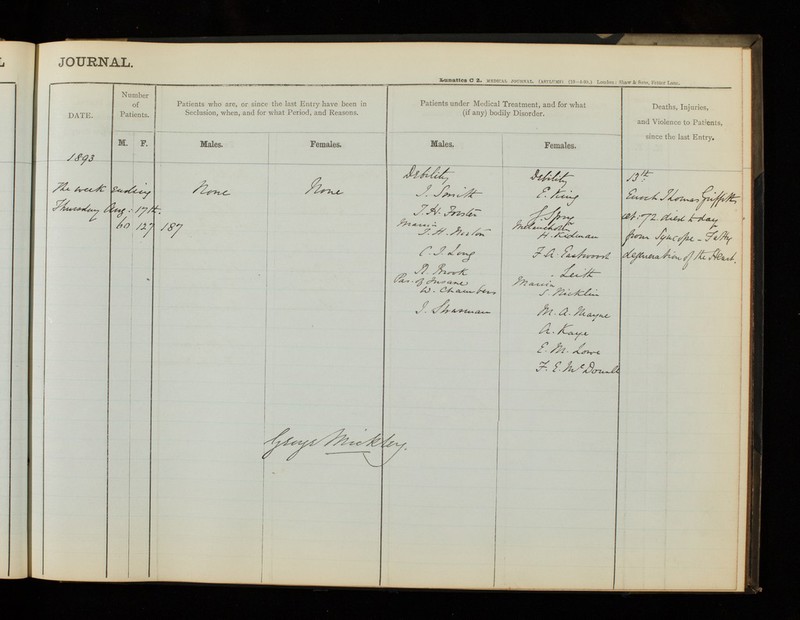 JOURNAL.
Lunatics C 2. MEDICAL JOURNAL. (ASYLUMS) London: Shaw & Sons, Fetter Lane.
DATE.
Number of Patients.
M. F.
Patients who are, or since the last Entry have been in Seclusion, when, and for what Period, and Reasons.
Males.
Females.
Patients under Medical Treatment, and for what (if any) bodily Disorder.
Males.
Females.
Deaths, Injuries, and Violence to Patients, since the last Entry.
1893
The week ending
Thursday Aug: 17th.
60 127 187
None
None
Debility
J. Smith
T. H. Forster
Mania
T. H. Neston
C. J. Long
Brook
Par. of Insane
W. Chambers
J. Shannan
Debility
E. King
Spry
Melancholia
H. Kidman
F. A. Eastwood
Leith
Mania
S Nicklin
M. A. Mayne
A. Kaye
E. M. Lowe
F. E. McDonald
13th
Enoch Thomas Griffiths
æt. 72 died today
from Syncope - Fatty
degeneration of the Heart.
George Mickley.